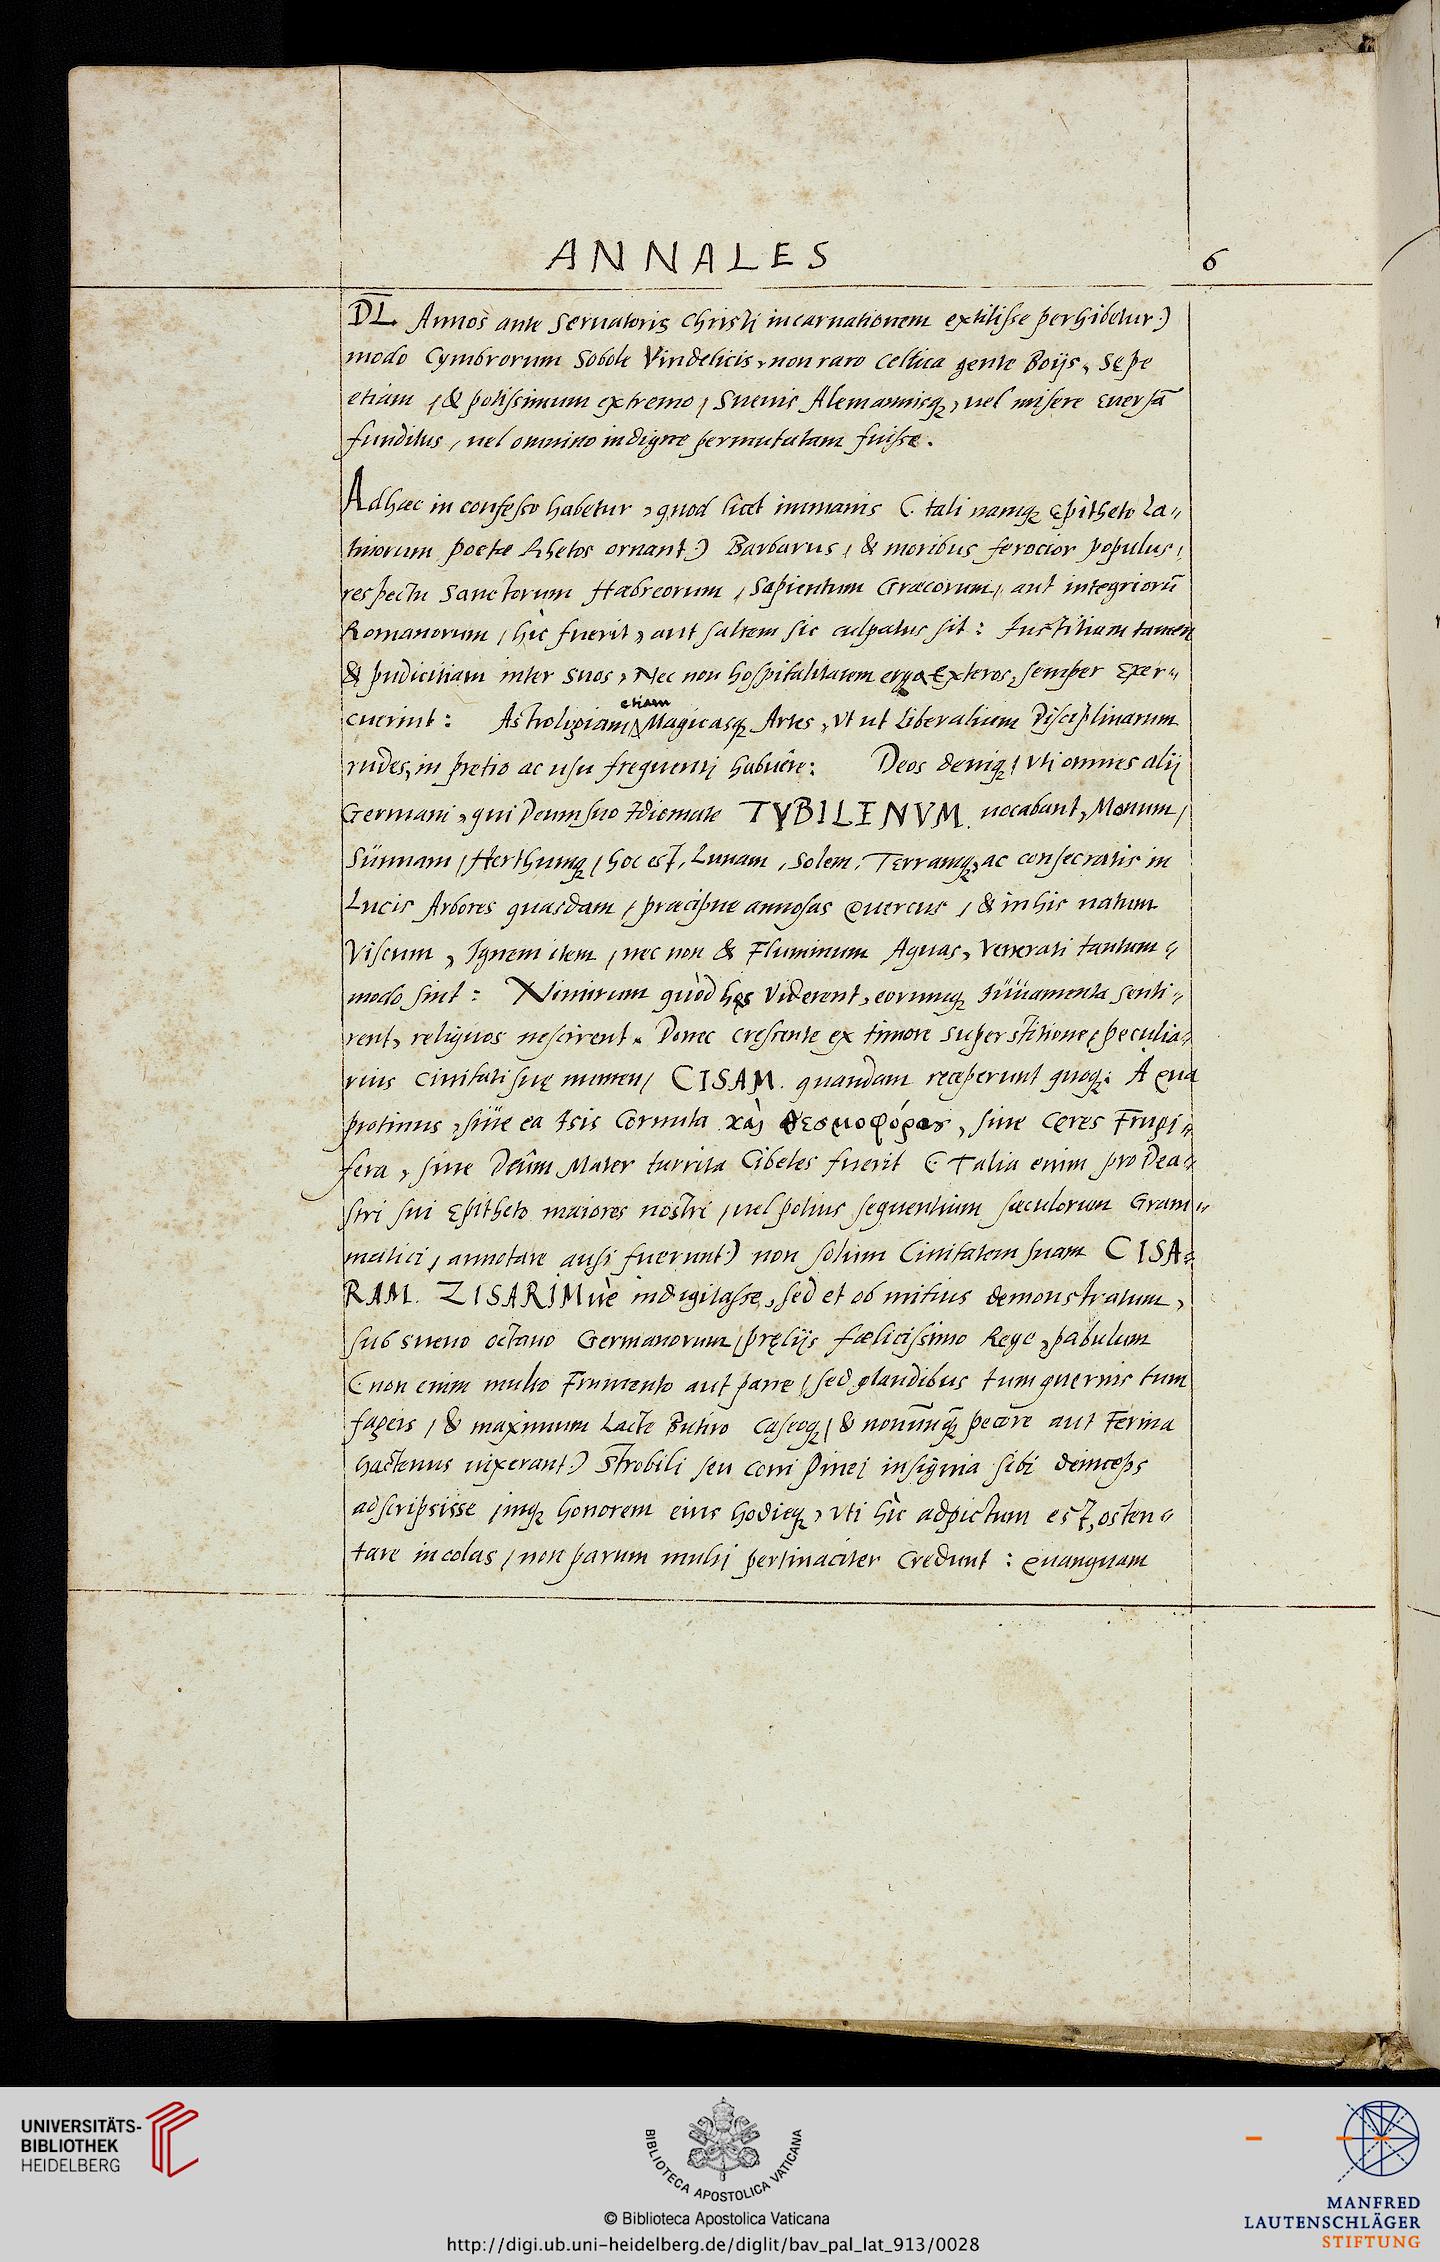 ANNALES
6
DL Annos ante Seruatoris Christi incarnationem extitisse perhibetur)
modo Cymbrorum Sobole Vindelicis, non raro Celtica gente Boijs, Sępe
etiam, & potissimum extremo, Sueuis Alemannisq;, uel misere Euersã
funditus, uel omnino indigne permutatam fuisse.
Adhæc in confesso habetur, quod licet immanis (tali namq; Epitheto La„
tinorum poetæ Rhetos ornant) Barbarus, & moribus ferocior populus,
respectu Sanctorum Hæbreorum, Sapientum Græcorum, aut integriorũ
Romanorum, hìc fuerit, aut saltem sic culpatus sit: Iustitiam tamen
& pudicitiam inter suos, Nec non hospitalitatem erga Exteros, semper Exer„
cuerint: Astrologiam etiam Magicasq; Artes, Vt ut Liberalium Disciplinarum
rudes, in pretio ac usu frequentj habuêre: Deos deniq;, Vti omnes alij
Germani, qui Deum suo Idiomate TVBILENVM. uocabant, Monum,
Sünnam, Herthumq;, hoc est, Lunam, Solem, Terramq;, ac consecratis in
Lucis Arbores quasdam, præcipue annosas Quercus, & in his natum
Viscum, Ignem item, nec non & Fluminum Aquas, Venerati tantum„
modo sint: Nimirum quòd hęs Viderent, eorumq; Iüuamenta senti„
rent, reliquos nescirent. Donec crescente ex timore superstitione, peculia„
rius Ciuitati suę numen, CISAM. quandam receperunt quoq;: A qua
protinus, siüe ea Isis Cornuta καὶ θεσμοφόρος, siue Ceres Frugi„
fera, siue Deûm Mater turrita Cibeles fuerit (Talia enim pro Dea„
stri sui Epitheto maiores nostri, uel potius sequentium sæculorum Gram„
matici, annotare ausi fuerunt) non solum Ciuitatem suam CISA„
RAM. ZISARIMuè indigitasse, sed et ob mitius demonstratum,
sub sueuo octauo Germanorum, pręlijs fælicissimo Rege, pabulum
(non enim multo Frumento aut pane, sed glandibus tum quernis tum
fageis, & maximum Lacte Butiro Caseoq;, & nonnũq; pecore aut Ferina
hactenus uixerant) Strobili seu Coni Pinej insignia sibi deinceps
adscripsisse, inq; honorem eius hodieq;, Vti hìc adpictum est, osten„
tare incolas, non parum multj pertinaciter Credunt: Quanquam
UNIVERSITÄTS-
BIBLIOTHEK
HEIDELBERG
BIBLIOTECA APOSTOLICA VATICANA
© Biblioteca Apostolica Vaticana
http://digi.ub.uni-heidelberg.de/diglit/bav_pal_lat_913/0028
MANFRED
LAUTENSCHLÄGER
STIFTUNG